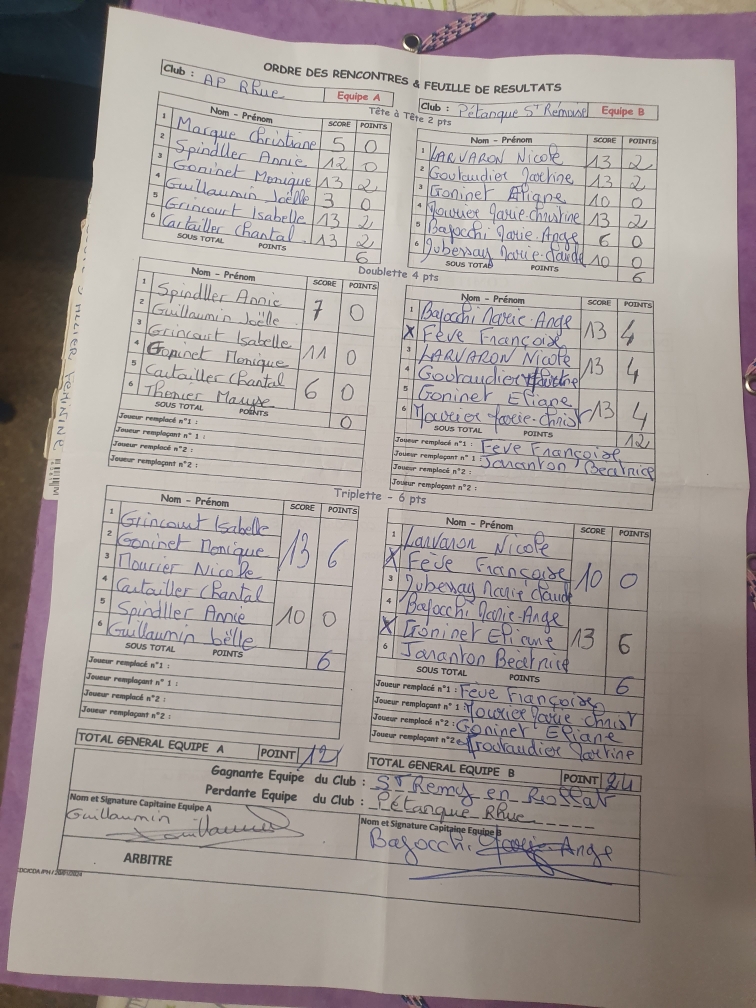 ORDRE DES RENCONTRES & FEUILLE DE RESULTATS
Club : AP Rhue Equipe A
Club : Pétanque St Rémoise Equipe B
Tête à Tête 2 pts
Nom - Prénom SCORE POINTS
1 Marque Christiane 5 0
2 Spindller Annie 12 0
3 Goninet Monique 13 2
4 Guillaumin Joëlle 3 0
5 Grincourt Isabelle 13 2
6 Cartailler Chantal 13 2
SOUS TOTAL POINTS 6
Nom - Prénom SCORE POINTS
1 LARVARON Nicole 13 2
2 Goutaudier Martine 13 2
3 Goninet Eliane 10 0
4 Mourier Marie-Christine 13 2
5 Bajocchi Marie-Ange 6 0
6 Jubessay Marie-Claude 10 0
SOUS TOTAL POINTS 6
Doublette 4 pts
Nom - Prénom SCORE POINTS
1 Spindller Annie
2 Guillaumin Joëlle 7 0
3 Grincourt Isabelle
4 Goninet Monique 11 0
5 Cartailler Chantal
6 Thonier Maryse 6 0
SOUS TOTAL POINTS 0
Joueur remplacé n°1 :
Joueur remplaçant n° 1 :
Joueur remplacé n°2 :
Joueur remplaçant n°2 :
Nom - Prénom SCORE POINTS
1 Bajocchi Marie-Ange
X Fève Françoise 13 4
3 LARVARON Nicole
4 Goutaudier Martine 13 4
5 Goninet Eliane
6 Mourier Marie-Christ 13 4
SOUS TOTAL POINTS 12
Joueur remplacé n°1 : Feve Françoise
Joueur remplaçant n° 1 : Jananton Béatrice
Joueur remplacé n°2 :
Joueur remplaçant n°2 :
Triplette - 6 pts
Nom - Prénom SCORE POINTS
1 Grincourt Isabelle
2 Goninet Monique
3 Mourier Nicole 13 6
4 Cartailler Chantal
5 Spindller Annie
6 Guillaumin Joëlle 10 0
SOUS TOTAL POINTS 6
Joueur remplacé n°1 :
Joueur remplaçant n° 1 :
Joueur remplacé n°2 :
Joueur remplaçant n°2 :
Nom - Prénom SCORE POINTS
1 Larvaron Nicole
X Fève Françoise
3 Jubessay Marie Claude 10 0
4 Bajocchi Marie-Ange
X Goninet Eliane
6 Jananton Béatrice 13 6
SOUS TOTAL POINTS 6
Joueur remplacé n°1 : Fève Françoise
Joueur remplaçant n° 1 : Mourier Marie Christ
Joueur remplacé n°2 : Goninet Eliane
Joueur remplaçant n°2 : Goutaudier Martine
TOTAL GENERAL EQUIPE A POINT 12
TOTAL GENERAL EQUIPE B POINT 24
Gagnante Equipe du Club : St Remy en Rollat
Perdante Equipe du Club : Pétanque Rhue
Nom et Signature Capitaine Equipe A
Guillaumin
Nom et Signature Capitaine Equipe B
Bajocchi Marie-Ange
ARBITRE